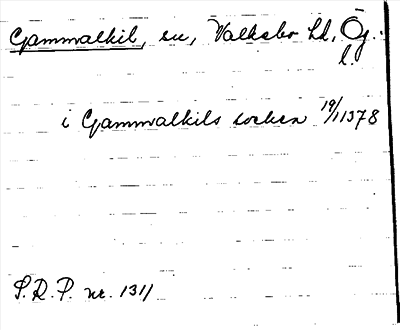 Gammalkil, sn, Valkebo hd, Ög.
l.
i Gammalkils socken 19/11 1378
S.R.P. nr. 1311